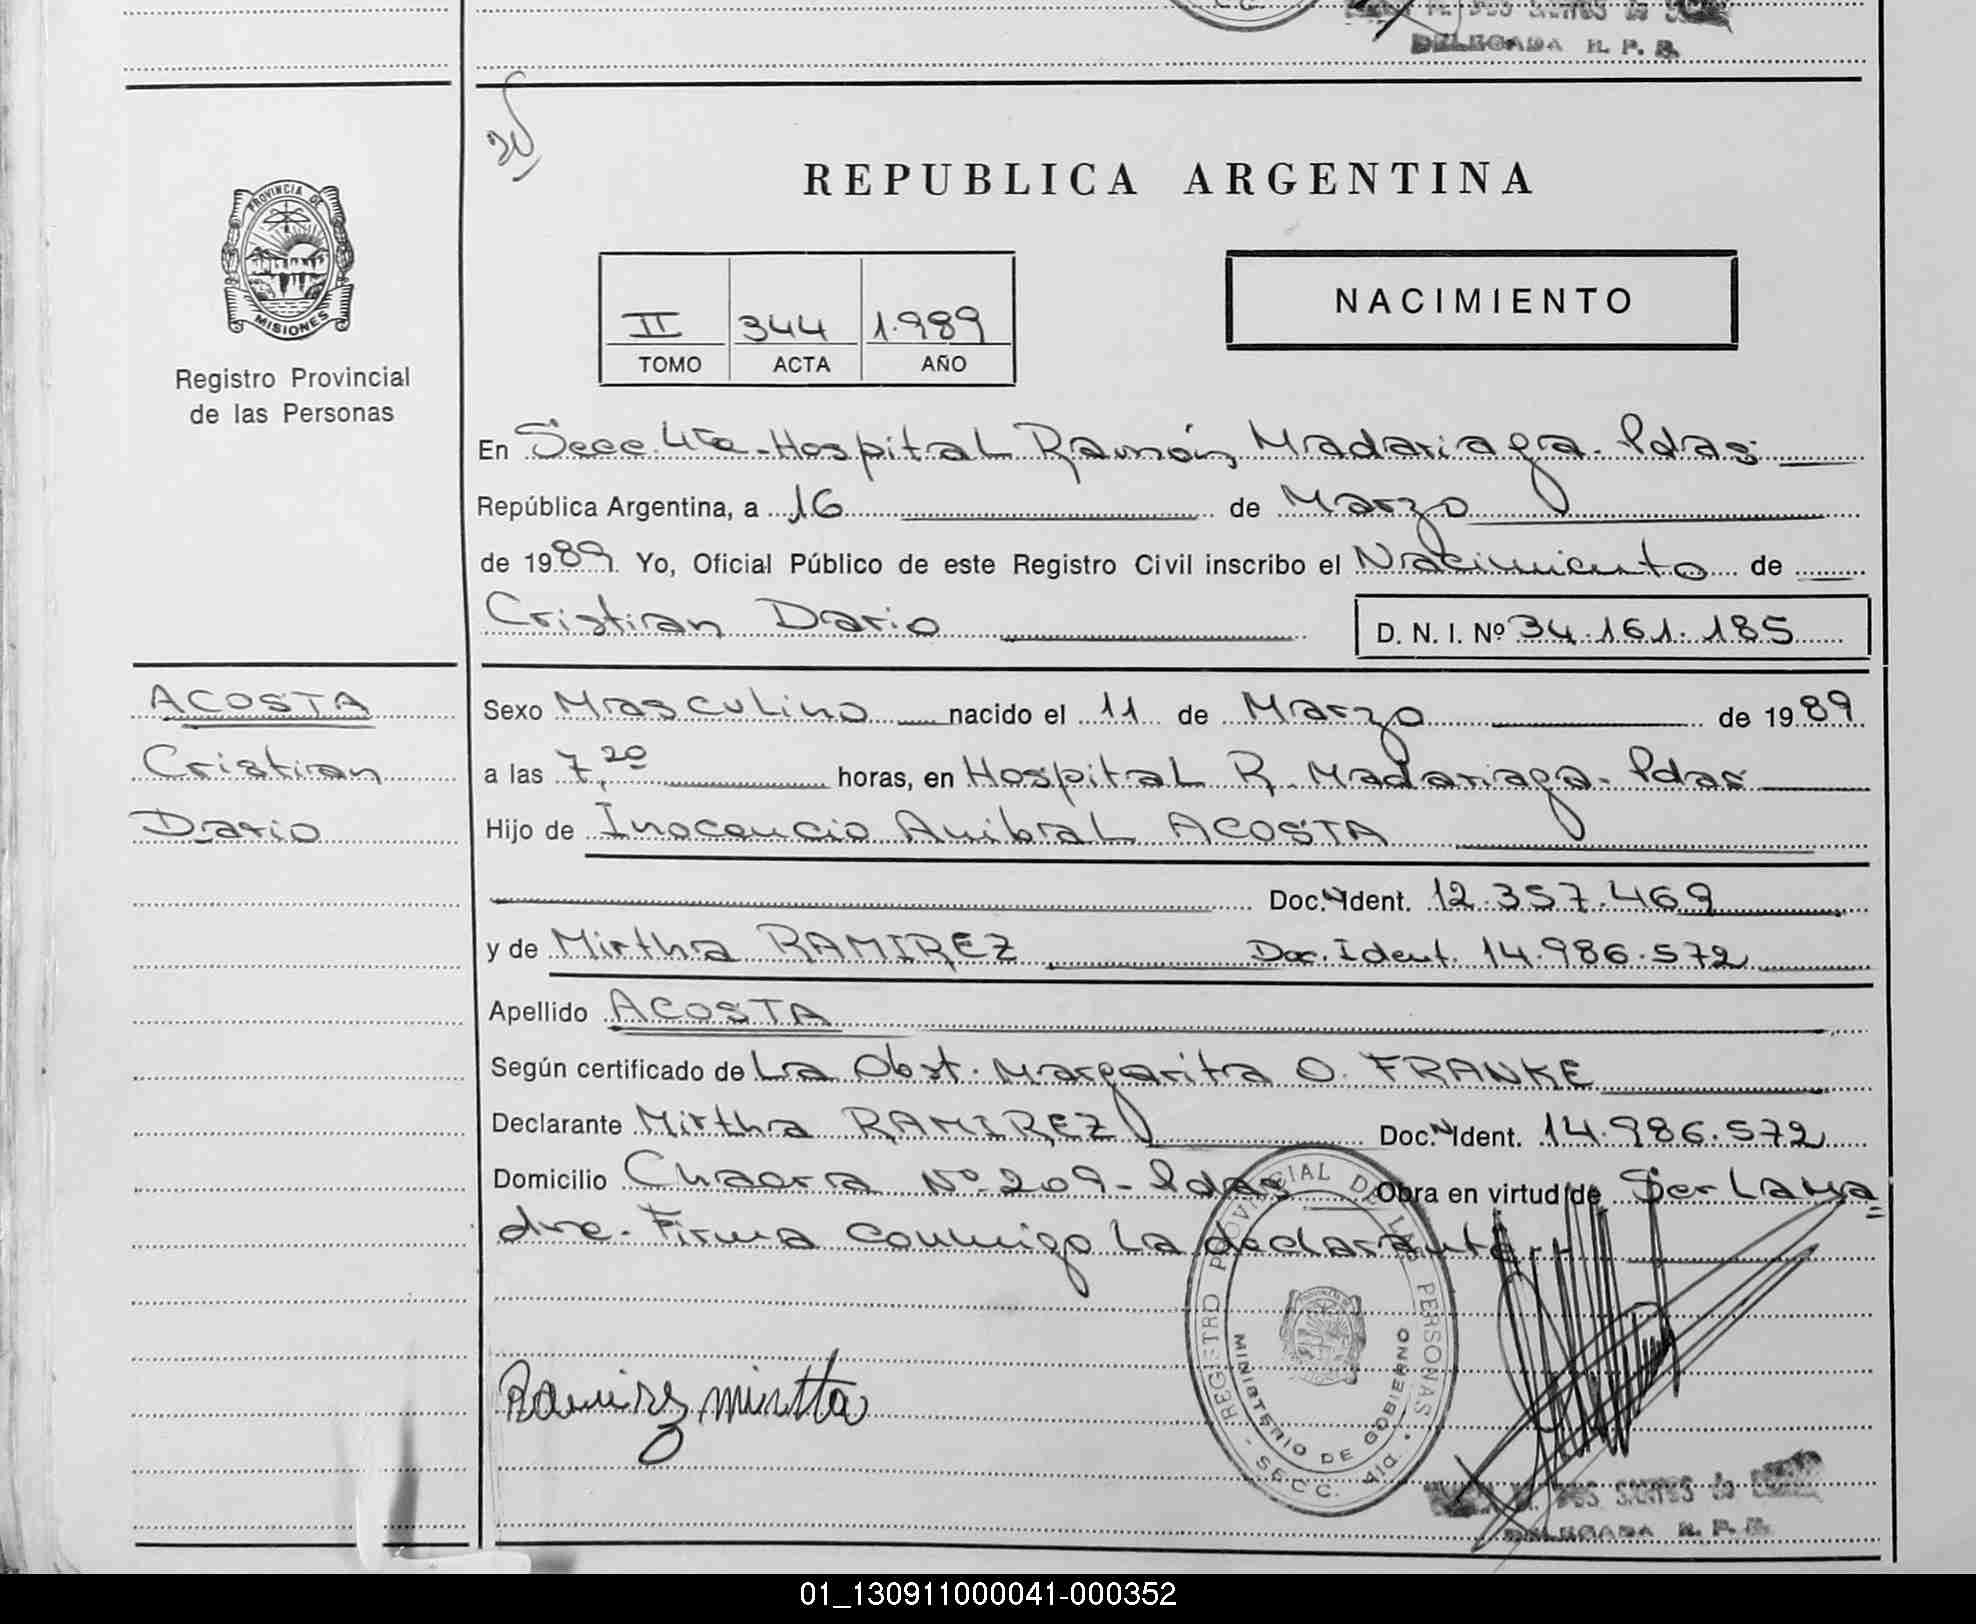 DELEGADA R. P. P.
REPUBLICA ARGENTINA
PROVINCIA DE
MISIONES
Registro Provincial
de las Personas
II 344 1.989
TOMO ACTA AÑO
NACIMIENTO
En Secc. 4ta - Hospital Ramón Madariaga - Pdas
República Argentina, a 16 de Marzo
de 1989 Yo, Oficial Público de este Registro Civil inscribo el Nacimiento de
Cristian Dario
D. N. I. Nº 34.161.185
ACOSTA
Cristian
Dario
Sexo Masculino nacido el 11 de Marzo de 1989
a las 7,20 horas, en Hospital R. Madariaga - Pdas
Hijo de Inocencio Anibal ACOSTA
Doc. Ident. 12.357.469
y de Mirtha RAMIREZ Doc. Ident. 14.986.572
Apellido ACOSTA
Según certificado de La Obst. Margarita O. FRANKE
Declarante Mirtha RAMIREZ Doc. Ident. 14.986.572
Domicilio Chacra Nº 209 - Pdas Obra en virtud de Ser La Ma
dre. Firma conmigo la declarante.
Ramirez mirtta
REGISTRO PROVINCIAL DE LAS PERSONAS
MINISTERIO DE GOBIERNO
- SECC. 4ta. -
DOS SANTOS de
DELEGADA R. P. P.
01_130911000041-000352